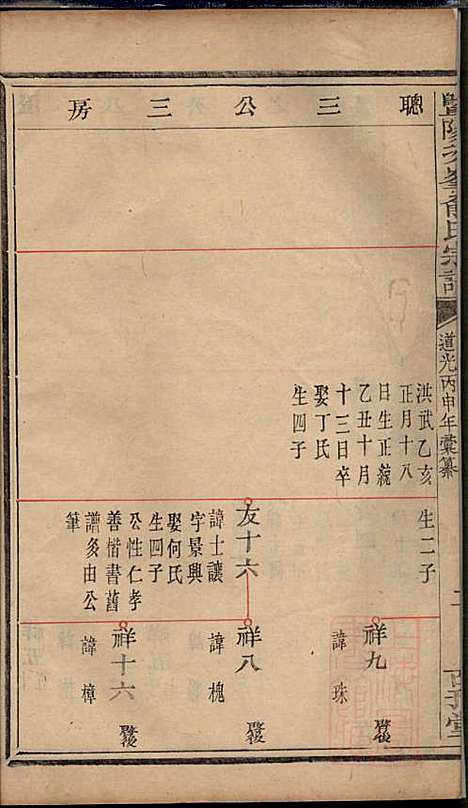 聰三公三房
道光丙申年彙纂
洪武乙亥
正月十八
日生正統
乙丑十月
十三日卒
娶丁氏
生四子
生二子
友十六
諱士讓
字景興
娶何氏
生四子
公性仁孝
善楷書舊
譜矣由公
筆
祥九
諱珠
祥八
諱槐
祥十六
諱樟